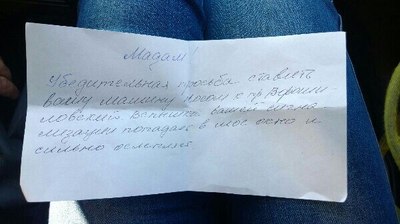 Мадам!
Убедительная просьба ставить
вашу машину носом к пр. Вороши-
ловский. Вспышка вашей сигна-
лизации попадает в мое окно и
сильно ослепляет